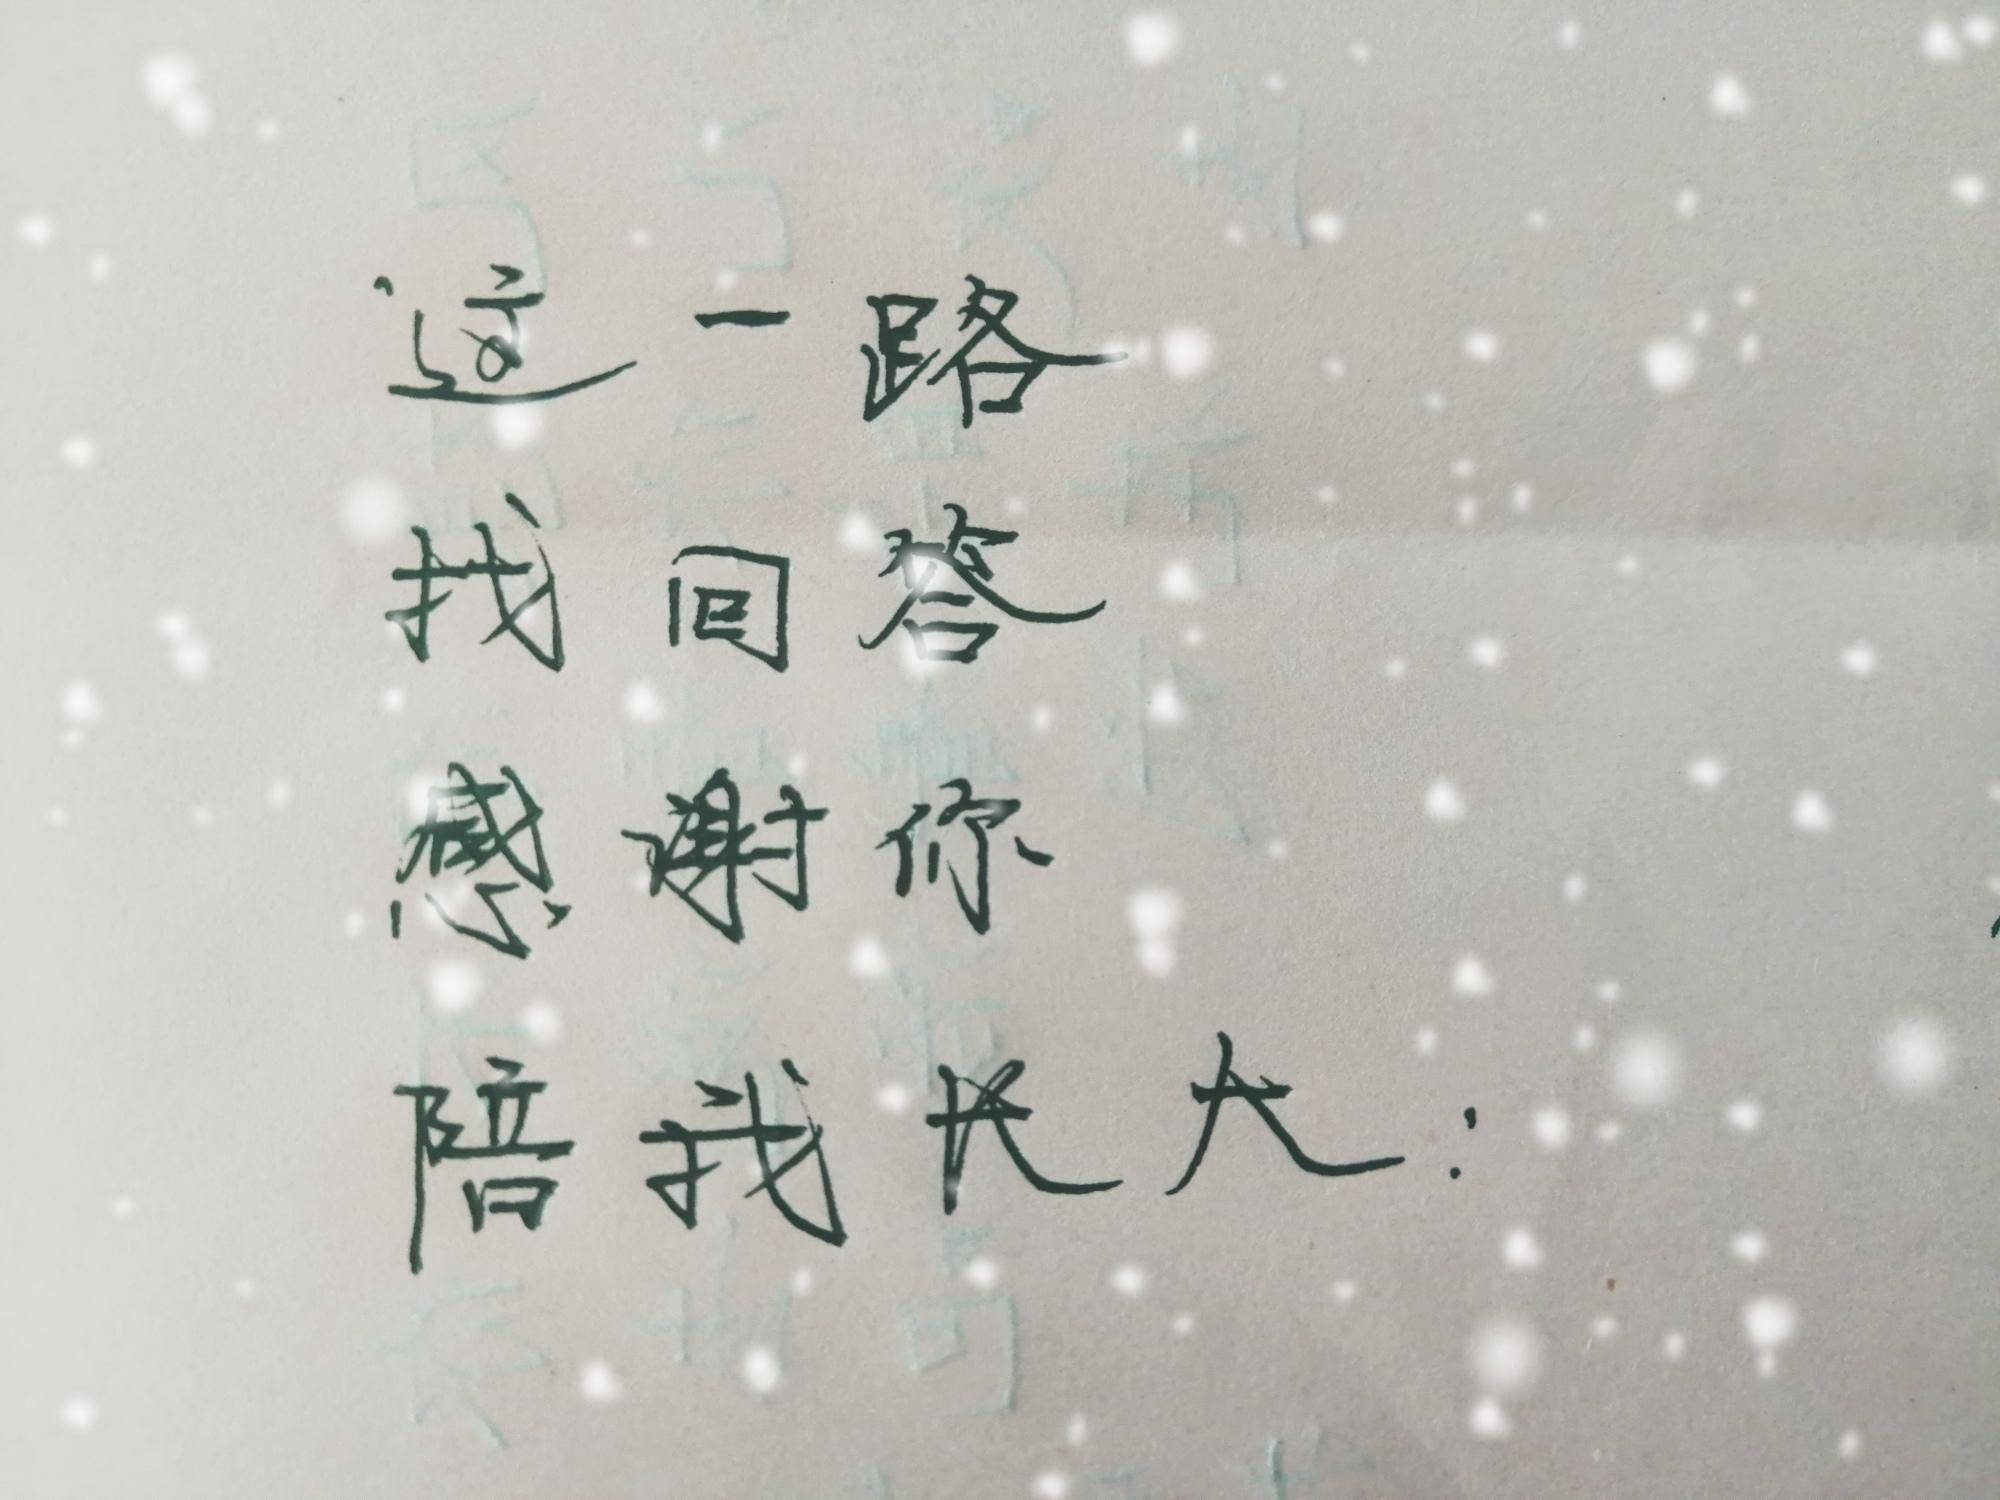 这一路
找回答
感谢你
陪我长大: